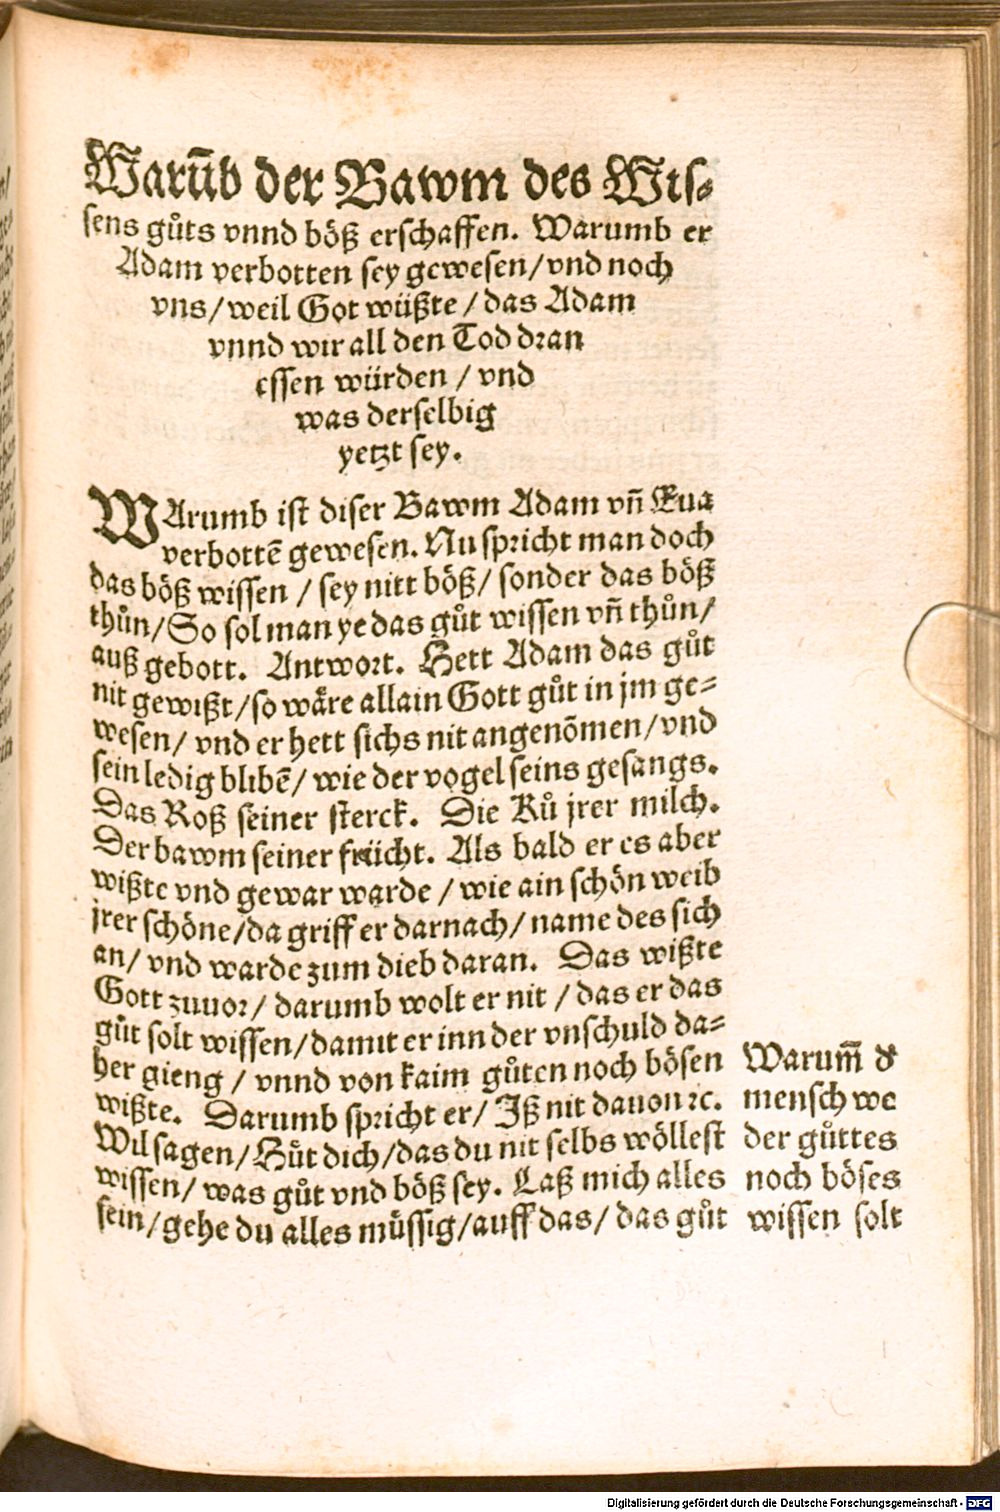 Warūb der Bawm des Wis-
sens gůts vnnd böß erschaffen. Warumb er
Adam verbotten sey gewesen/vnd noch
vns/weil Got wüßte/das Adam
vnnd wir all den Tod dran
essen würden/vnd
was derselbig
yetzt sey.
WArumb ist diser Bawm Adam vñ Eua
verbottē gewesen. Nu spricht man doch
das böß wissen/sey nitt böß/sonder das böß
thůn/So sol man ye das gůt wissen vñ thůn/
auß gebott. Antwort. Hett Adam das gůt
nit gewißt/so wäre allain Gott gůt in jm ge-
wesen/vnd er hett sichs nit angenōmen/vnd
sein ledig blibē/wie der vogel seins gesangs.
Das Roß seiner sterck. Die Ků jrer milch.
Der bawm seiner frücht. Als bald er es aber
wißte vnd gewar warde/wie ain schön weib
jrer schöne/da griff er darnach/name des sich
an/vnd warde zum dieb daran. Das wißte
Gott zuuor/darumb wolt er nit/das er das
gůt solt wissen/damit er inn der vnschuld da-
her gieng/vnnd von kaim gůten noch bösen
wißte. Darumb spricht er/Iß nit dauon ꝛc.
Wil sagen/Hůt dich/das du nit selbs wöllest
wissen/was gůt vnd böß sey. Laß mich alles
sein/gehe du alles müssig/auff das/das gůt
Warum̄ d'
mensch we
der gůttes
noch böses
wissen solt
Digitalisierung gefördert durch die Deutsche Forschungsgemeinschaft - DFG